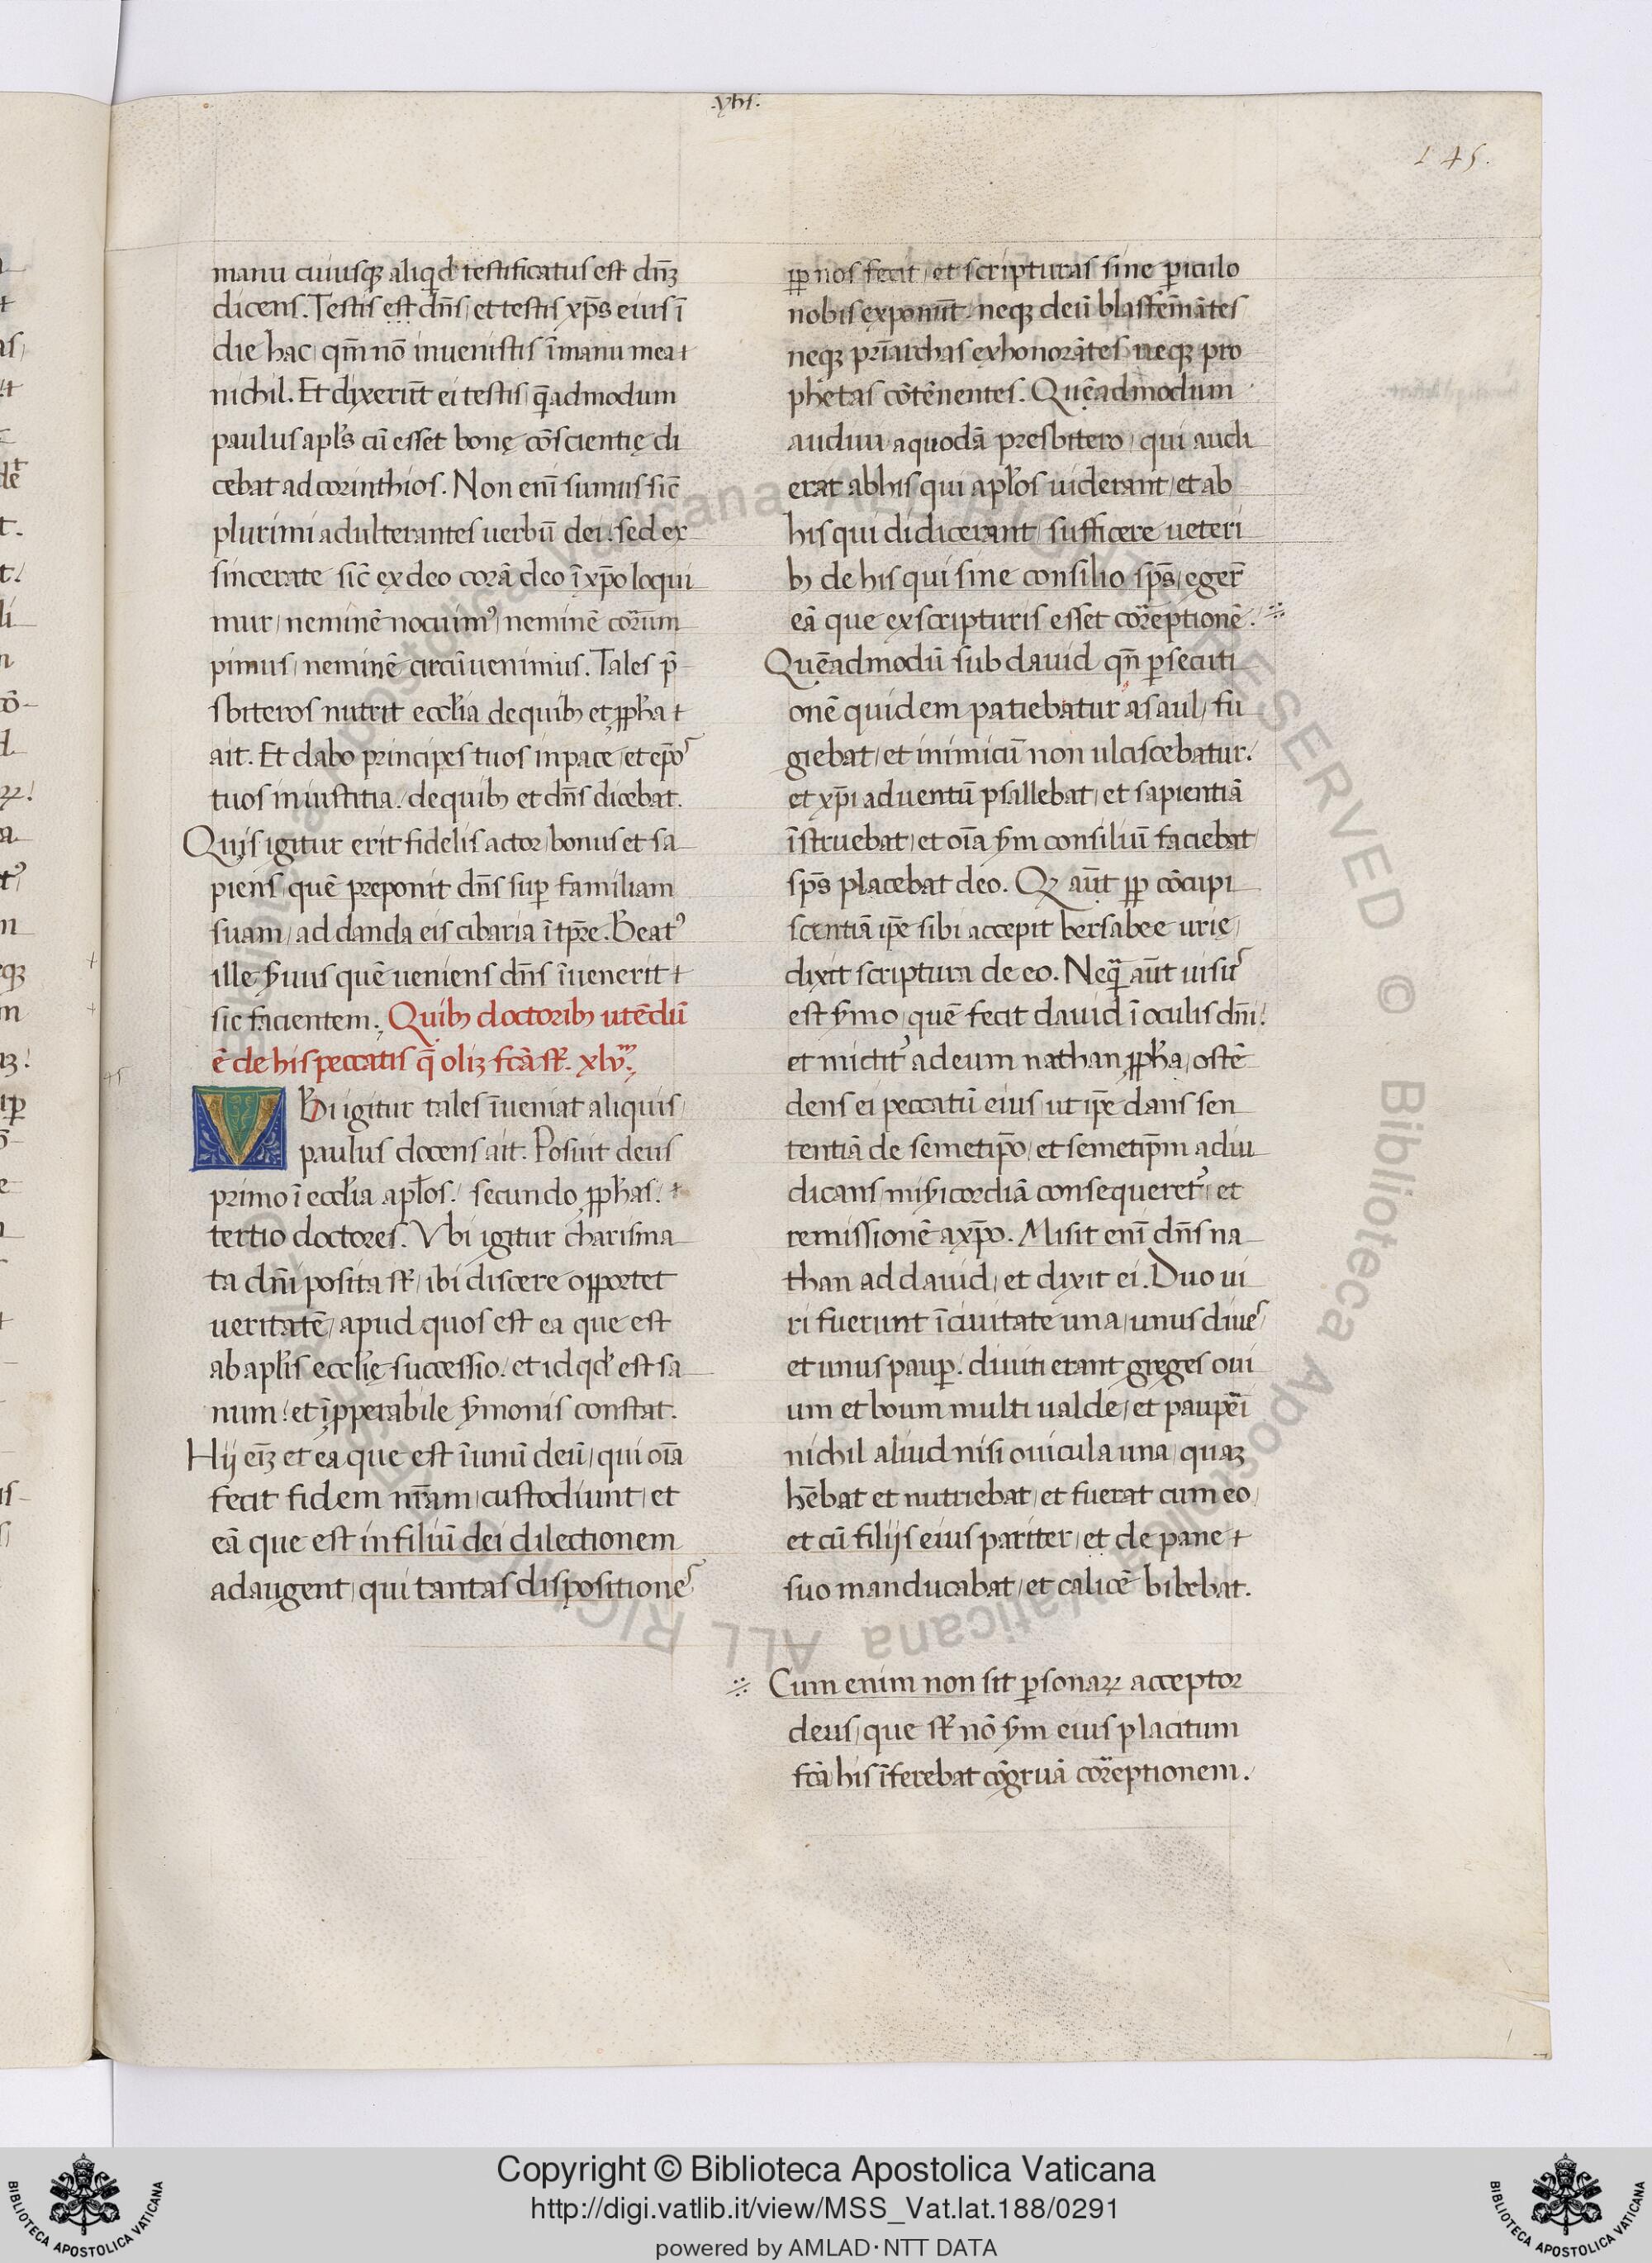 .yhs.
145.
manu cuiusqꝫ aliqd testificatus est dn̄ꝫ
dicens. Testis est dn̄s, et testis xp̄s eius ī
die hac, qm̄ nō inuenistis ī manu mea ⁊
nichil. Et dixerūt ei testis, q̄admodum
paulus apl̄s cū esset bonę cōscientię di
cebat ad corinthios. Non enī sumus sic̄
plurimi adulterantes uerbū dei. sed ex
sincerate sic̄ ex deo corā deo ī xp̄o loqui
mur, neminē nocuimꝰ, neminē corrum
pimus, neminē circūuenimus. Tales p̄
sbiteros nutrit eccl̄ia de quibꝫ et ꝓph̄a ⁊
ait. Et dabo principes tuos in pace, et ep̄os
tuos in iustitia. de quibꝫ et dn̄s dicebat.
Quis igitur erit fidelis actor, bonus et sa
piens, quē preponit dn̄s suꝑ familiam
suam, ad danda eis cibaria ī tp̄re. Beatꝰ
ille s̄uus quē ueniens dn̄s īuenerit ⁊
sic facientem. Quibꝫ doctoribꝫ utēdū
ē de his peccatis q̄ oliꝫ fcā st̄. xlv.
45
V Bi igitur tales īueniat aliquis,
paulus docens ait. Posuit deus
primo ī eccl̄ia apl̄os. secundo ꝓph̄as. ⁊
tertio doctores. Vbi igitur charisma
ta dn̄i posita st̄, ibi discere opportet
ueritatē, apud quos est ea que est
ab apl̄is eccl̄ię successio. et id qd̄ est sa
num. et īpperabile s̄monis constat.
Hij eīꝫ et ea que est ī unū deū, qui oīa
fecit fidem nr̄am, custodiunt, et
eā que est in filiū dei dilectionem
adaugent, qui tantas dispositiones
ꝓp nos fecit, et scripturas sine ꝑiculo
nobis exponūt. neqꝫ deū blasfemātes
neqꝫ pr̄iarchas exhonorātes neqꝫ pro
phetas cōtēnentes. Quēadmodum
audiui a quodā presbitero, qui audi
erat ab his qui apl̄os uiderant, et ab
his qui didicerant, sufficere ueteri
bꝫ de his qui sine consilio sp̄s, eger̄
eā que ex scripturis esset correptionē.
Quēadmodū sub dauid qn̄ ꝑsecuti
onē quidem patiebatur a saul, fu
giebat, et inimicū non ulciscebatur.
et xp̄i aduentū psallebat, et sapientiā
īstruebat, et oīa s̄m consiliū faciebat
sp̄s placebat deo. Qꝫ aūt ꝓp cōcupi
scentiā ip̄e sibi accepit bersabee urię,
dixit scriptura de eo. Neq̄ aūt uisus
est s̄mo, quē fecit dauid ī oculis dn̄i.
et mictitꝰ ad eum nathan ꝓph̄a, ostē
dens ei peccatū eius, ut ip̄e dans sen
tentiā de semetip̄o, et semetip̄m adiu
dicans, mis̄icordiā consequeretꝰ, et
remissionē a xp̄o. Misit enī dn̄s na
than ad dauid, et dixit ei. Duo ui
ri fuerunt ī ciuitate una, unus diues
et unus pauꝑ. diuiti erant greges oui
um et boum multi ualde, et pauperi
nichil aliud nisi ouicula una, quaꝫ
hēbat et nutriebat, et fuerat cum eo,
et cū filijs eius pariter, et de pane ⁊
suo manducabat, et calicē bibebat.
Cum enim non sit ꝑsonaꝝ acceptor
deus, que st̄ nō s̄m eius placitum
fcā his īferebat cōgruā correptionem.
Copyright © Biblioteca Apostolica Vaticana
http://digi.vatlib.it/view/MSS_Vat.lat.188/0291
powered by AMLAD·NTT DATA
BIBLIOTECA APOSTOLICA VATICANA
BIBLIOTECA APOSTOLICA VATICANA